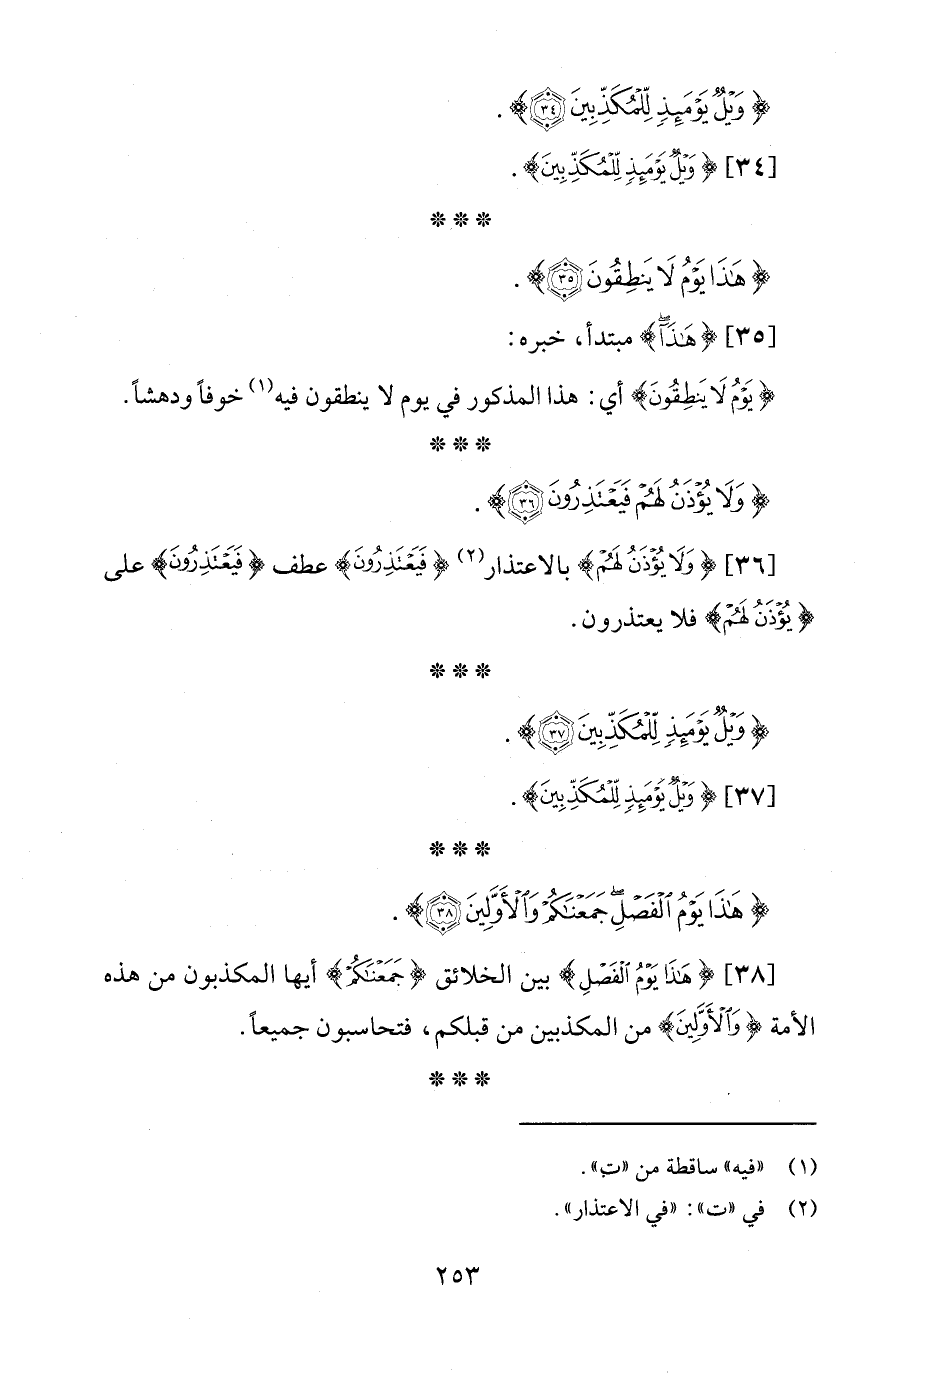 ﴿ وَيْلٌ يَوْمَئِذٍ لِّلْمُكَذِّبِينَ ٣٤ ﴾ .
[٣٤] ﴿ وَيْلٌ يَوْمَئِذٍ لِّلْمُكَذِّبِينَ ﴾ .
* * *
﴿ هَٰذَا يَوْمُ لَا يَنطِقُونَ ٣٥ ﴾ .
[٣٥] ﴿ هَٰذَا ۖ ﴾ مبتدأ، خبره:
﴿ يَوْمُ لَا يَنطِقُونَ ﴾ أي: هذا المذكور في يوم لا ينطقون فيه(١) خوفاً ودهشاً.
* * *
﴿ وَلَا يُؤْذَنُ لَهُمْ فَيَعْتَذِرُونَ ٣٦ ﴾ .
[٣٦] ﴿ وَلَا يُؤْذَنُ لَهُمْ ﴾ بالاعتذار(٢) ﴿ فَيَعْتَذِرُونَ ﴾ عطف ﴿ فَيَعْتَذِرُونَ ﴾ على
﴿ يُؤْذَنُ لَهُمْ ﴾ فلا يعتذرون.
* * *
﴿ وَيْلٌ يَوْمَئِذٍ لِّلْمُكَذِّبِينَ ٣٧ ﴾ .
[٣٧] ﴿ وَيْلٌ يَوْمَئِذٍ لِّلْمُكَذِّبِينَ ﴾ .
* * *
﴿ هَٰذَا يَوْمُ ٱلْفَصْلِ ۖ جَمَعْنَٰكُمْ وَٱلْأَوَّلِينَ ٣٨ ﴾ .
[٣٨] ﴿ هَٰذَا يَوْمُ ٱلْفَصْلِ ﴾ بين الخلائق ﴿ جَمَعْنَٰكُمْ ﴾ أيها المكذبون من هذه
الأمة ﴿ وَٱلْأَوَّلِينَ ﴾ من المكذبين من قبلكم، فتحاسبون جميعاً.
* * *
(١) «فيه» ساقطة من «ت».
(٢) في «ت»: «في الاعتذار».
٢٥٣